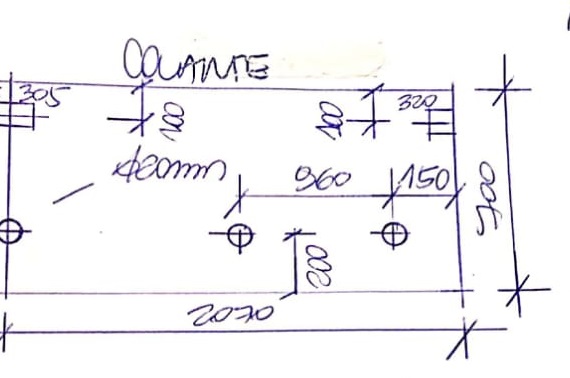 COLANTE
305
100
100
320
ϕ20mm
960
150
900
200
2070